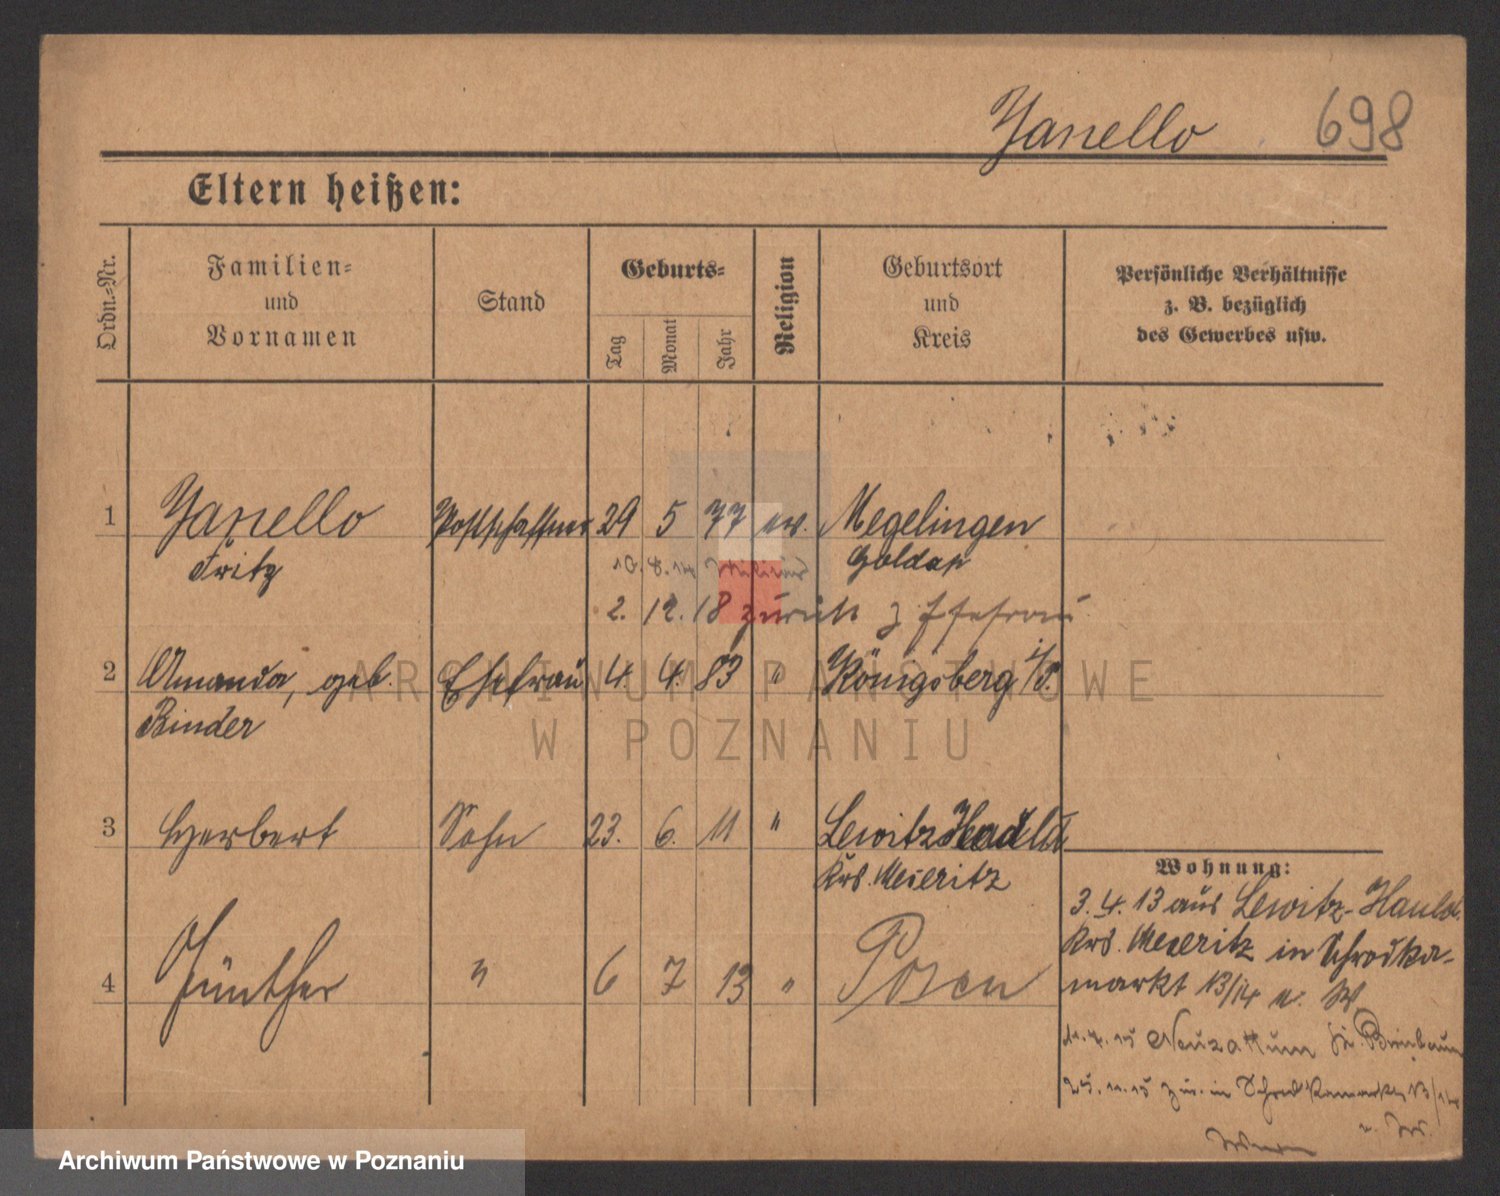 Janello 698
Eltern heißen:
Ordn.-Nr.
Familien-
und
Vornamen
Stand
Geburts-
Tag
Monat
Jahr
Religion
Geburtsort
und
Kreis
Persönliche Verhältnisse
z. B. bezüglich
des Gewerbes usw.
1 Janello Postschaffner 29 5 77 ev. Megelingen
Fritz Goldap
10.8.14 Militär
2. 12. 18 zurück z Ehefrau
2 Amanda, geb. Ehefrau 4 4. 83 " Königsberg i/P.
Binder
3 Herbert Sohn 23. 6. 11 " Lewitz Hauld
Krs. Meseritz
4 Günther " 6 7 13 " Posen
Wohnung:
3. 4. 13 aus Lewitz-Hauld.
Krs. Meseritz in Schrodka-
markt 13/14 u. W
Neuzattum Birnbaum
25. 11. 15 zur. in Schrodkamarkt 13/14
ARCHIWUM PAŃSTWOWE
W POZNANIU
Archiwum Państwowe w Poznaniu